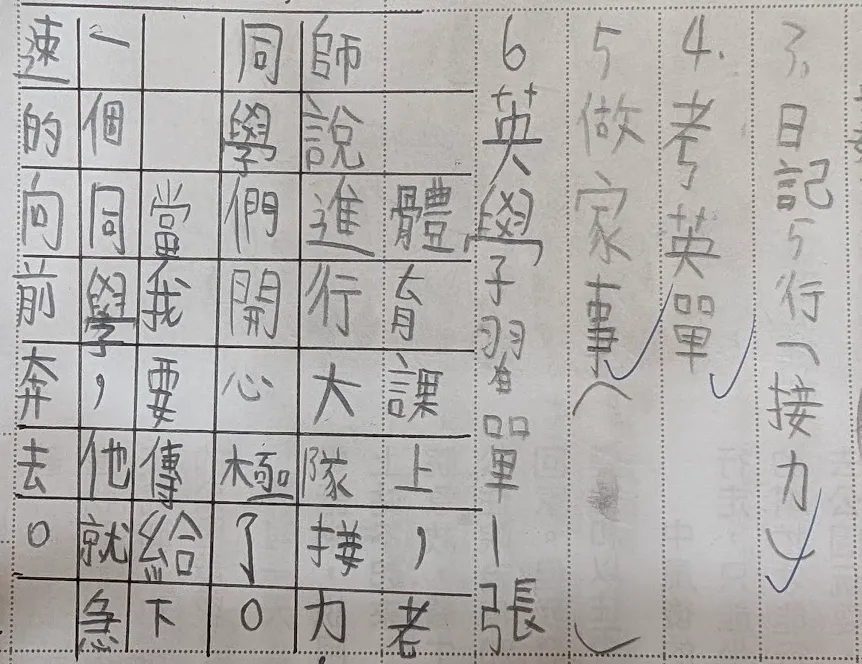 3.日記5行(接力)
4.考英單
5做家事(
6英學習單1張
體育課上，老
師說進行大隊接力
同學們開心極了。
當我要傳給下
一個同學，他就急
速的向前奔去。